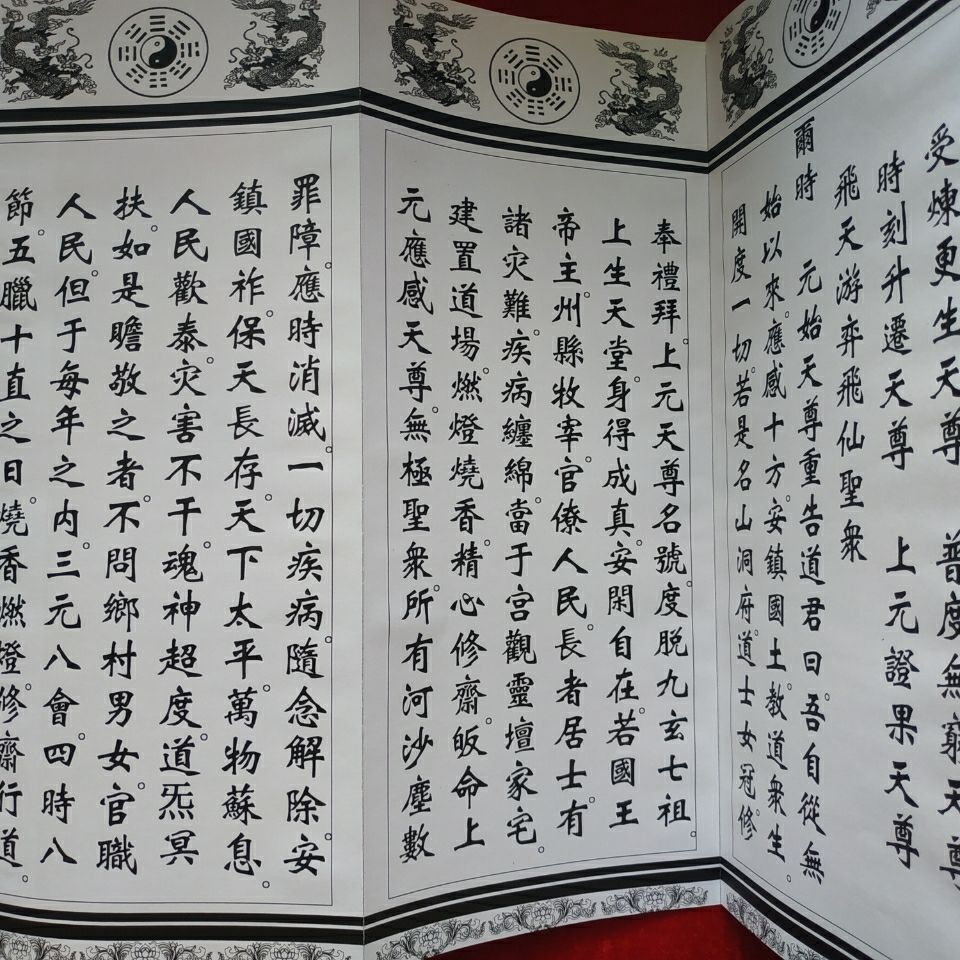 受煉更生天尊 普度無窮天尊
時刻升遷天尊 上元證果天尊
飛天游弈飛仙聖衆
爾時 元始天尊重告道君曰。吾自從無
始以來。應感十方。安鎮國土。教道衆生。
開度一切。若是名山洞府。道士女冠。修
奉禮拜。上元天尊名號。度脱九玄七祖。
上生天堂。身得成真。安閑自在。若國王
帝主。州縣牧宰。官僚人民。長者居士。有
諸灾難。疾病纏綿。當于宫觀靈壇家宅。
建置道場。燃燈燒香。精心修齋。皈命上
元應感天尊。無極聖衆。所有河沙塵數
罪障。應時消滅。一切疾病。隨念解除。安
鎮國祚。保天長存。天下太平。萬物蘇息。
人民歡泰。灾害不干。魂神超度。道炁冥
扶。如是瞻敬之者。不問鄉村男女。官職
人民。但于每年之内。三元八會。四時八
節。五臘十直之日。燒香燃燈。修齋行道